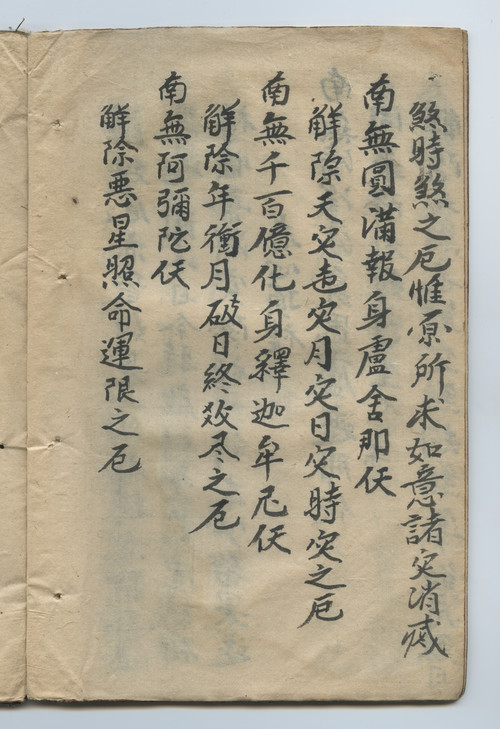 煞時煞之厄惟原所求如意諸灾消滅
南無圓滿報身盧舍那仸
觧除天灾造灾月灾日灾時灾之厄
南無千百億化身釋迦牟尼仸
觧除年衝月破日終效尽之厄
南無阿彌陀仸
觧除惡星照命運限之厄